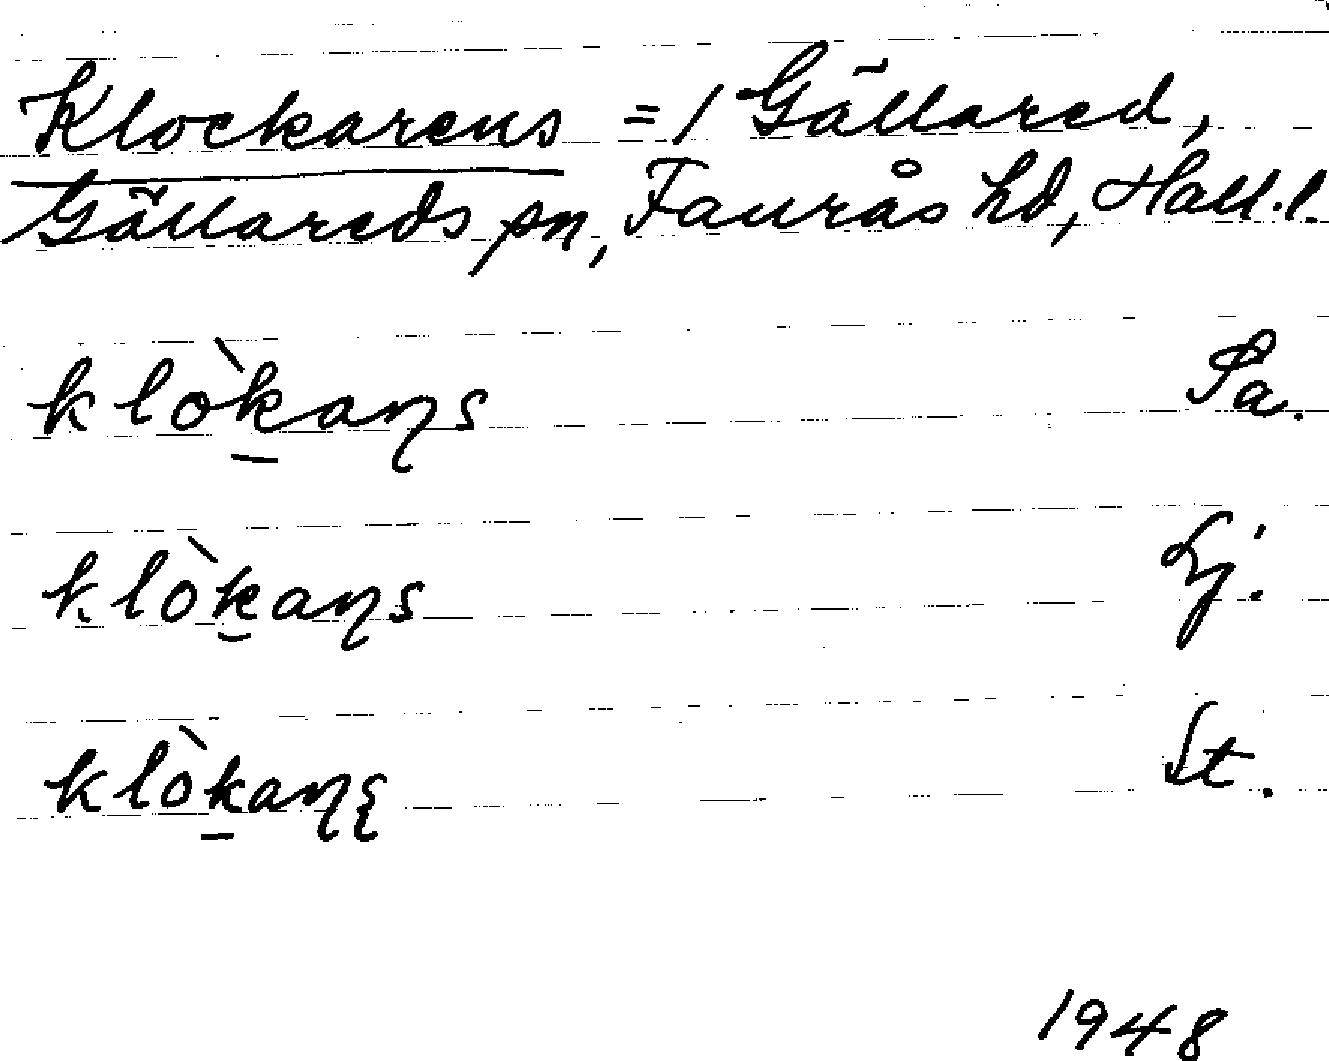 Klockarens = 1 Gällared,
Gällareds sn, Faurås hd, Hall. l.
klò̱kaɳs Sa.
klò̱kaɳs Lj.
klò̱kaɳʂ St.
1948